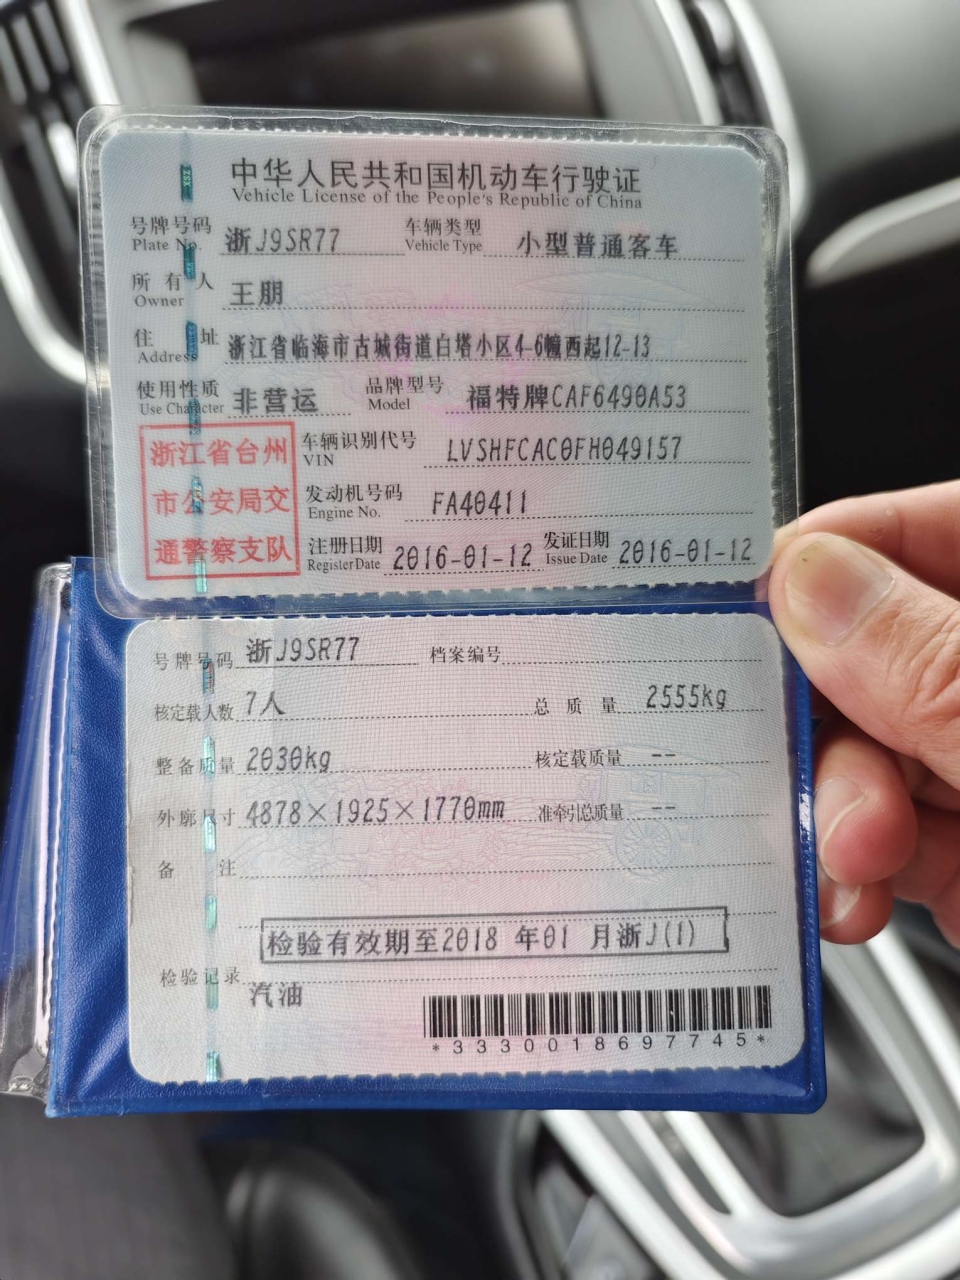 中华人民共和国机动车行驶证
Vehicle License of the People's Republic of China
号牌号码 浙J9SR77 车辆类型 小型普通客车
Plate No. Vehicle Type
所有人 王朋
Owner
住址 浙江省临海市古城街道白塔小区4-6幢西起12-13
Address
使用性质 非营运 品牌型号 福特牌CAF6490A53
Use Character Model
浙江省台州
市公安局交
通警察支队
车辆识别代号 LVSHFCAC0FH049157
VIN
发动机号码 FA40411
Engine No.
注册日期 2016-01-12 发证日期 2016-01-12
Register Date Issue Date
号牌号码 浙J9SR77 档案编号
核定载人数 7人 总质量 2555kg
整备质量 2030kg 核定载质量 --
外廓尺寸 4878×1925×1770mm 准牵引总质量 --
备注
检验有效期至2018 年01 月浙J(1)
检验记录
汽油
*3330018697745*